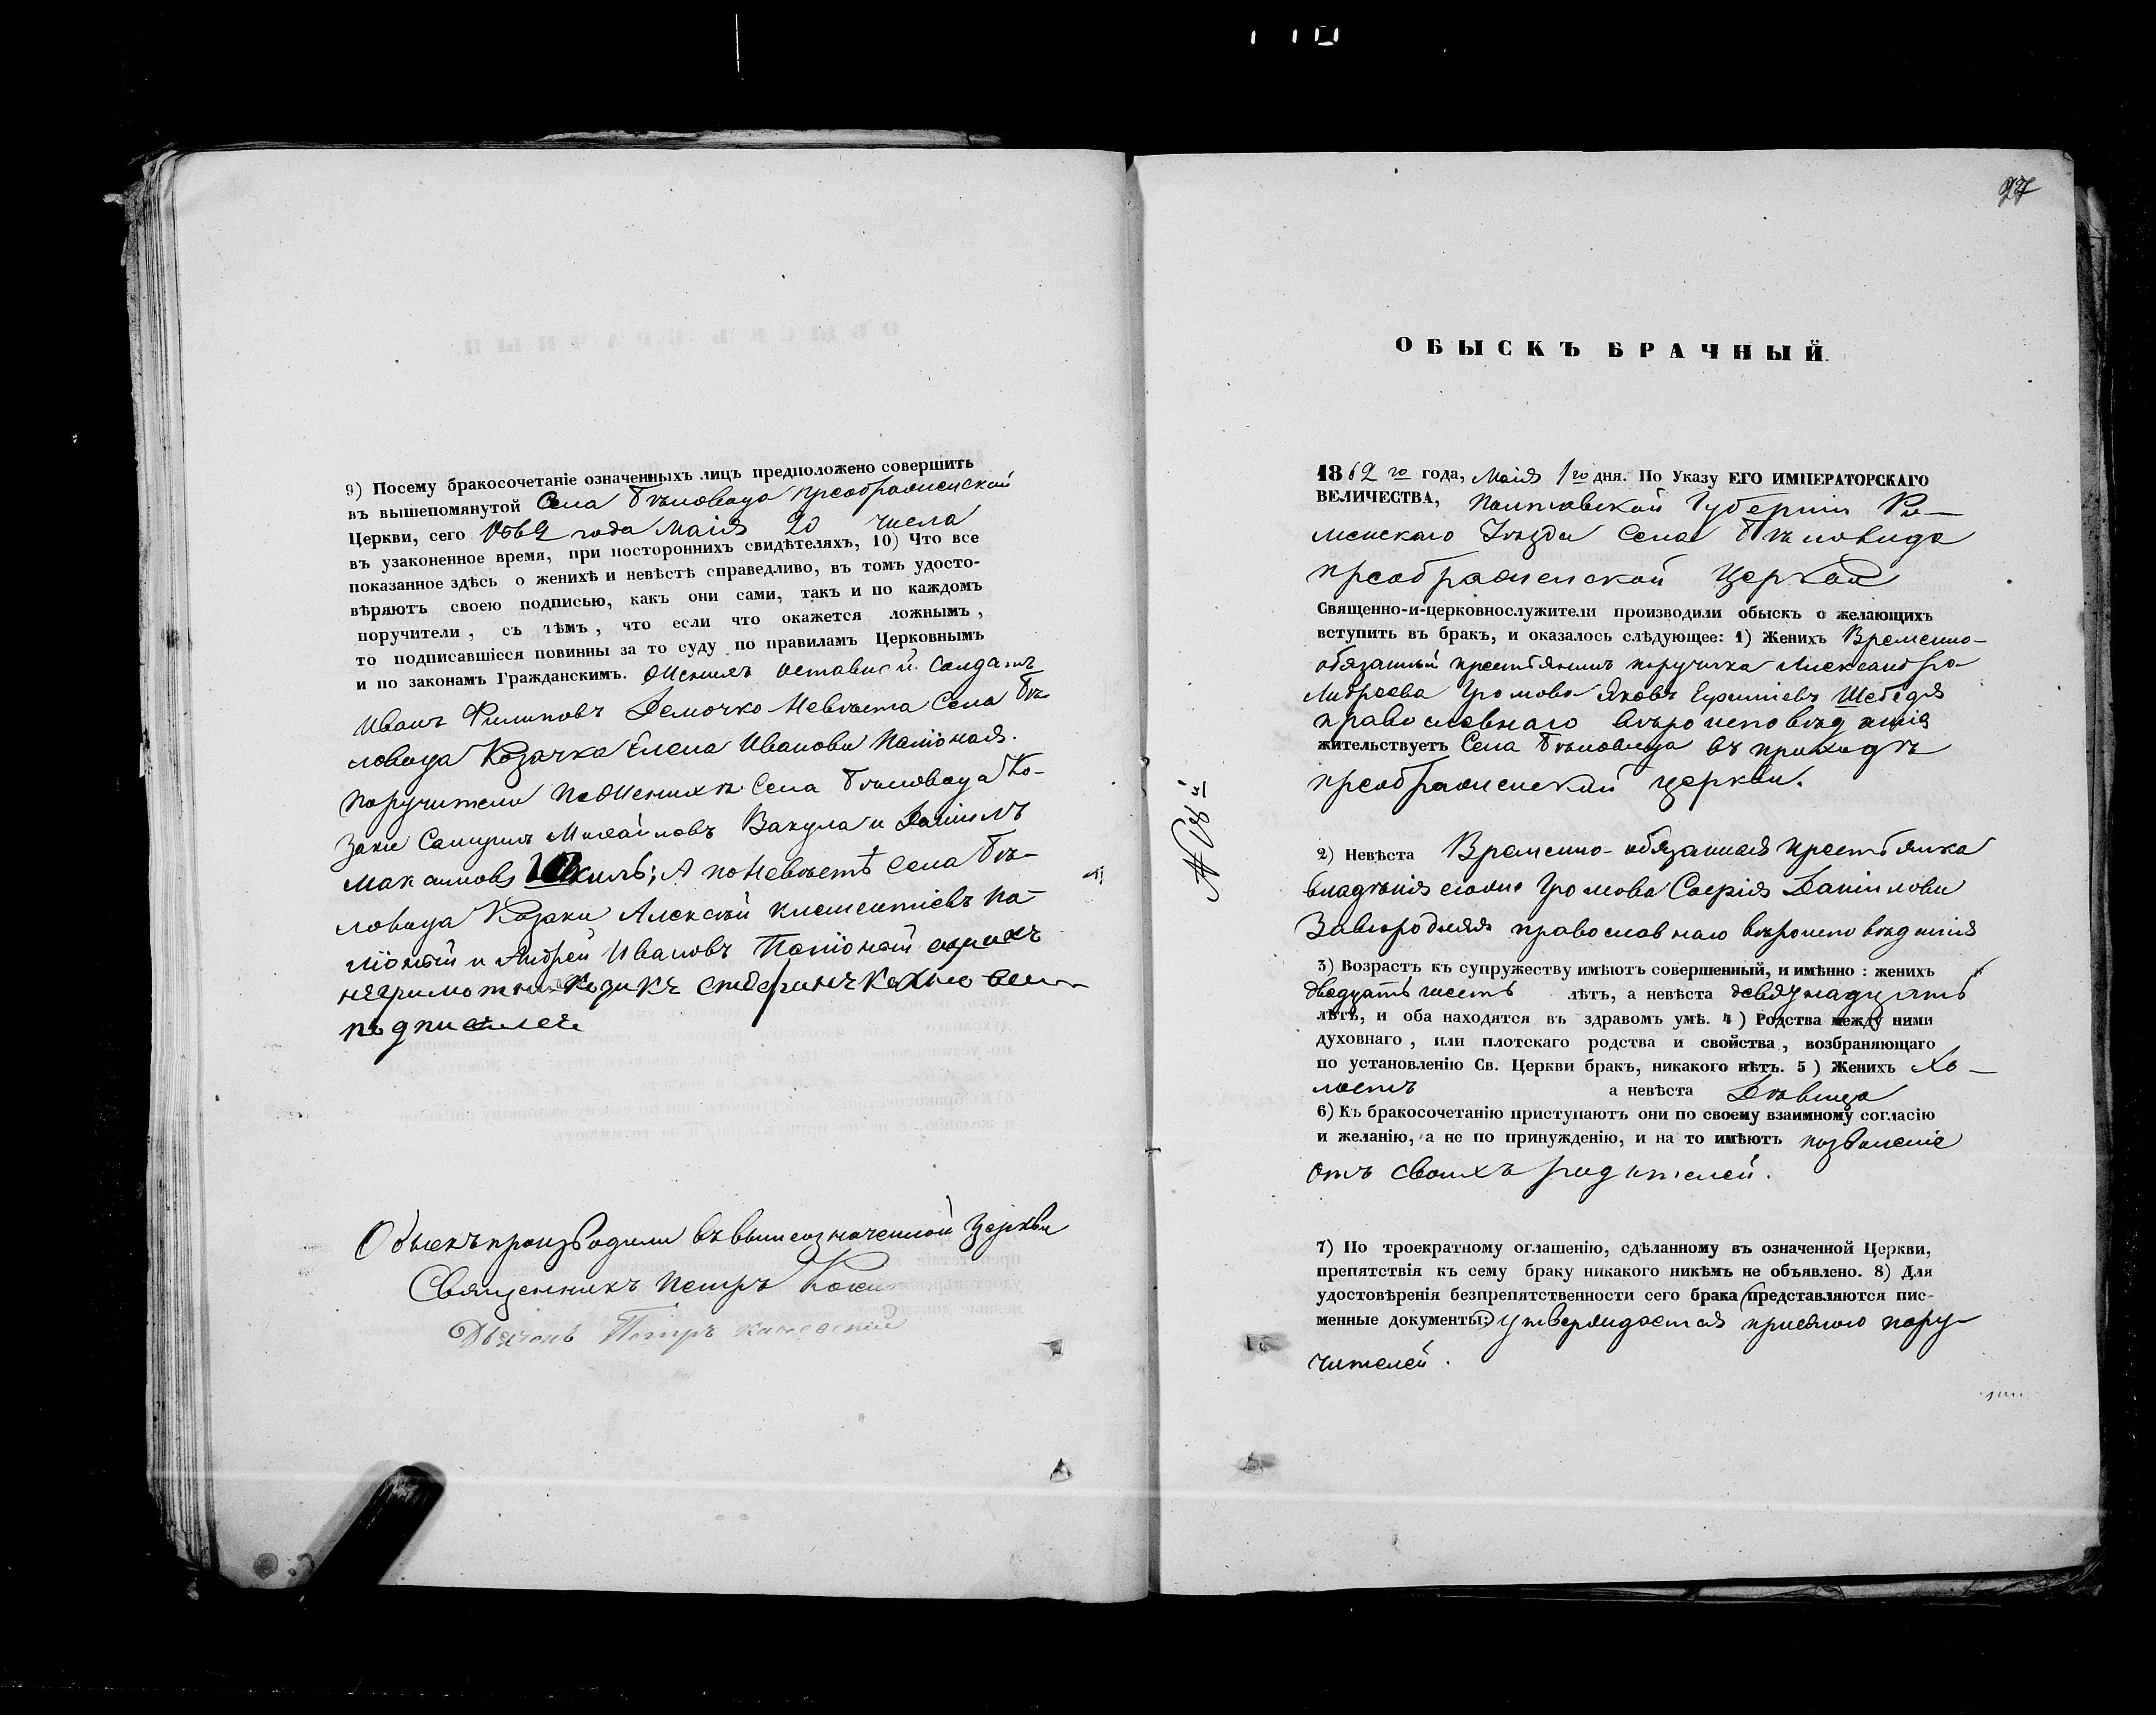 9) Посему бракосочетаніе означенныхъ лицъ предположено совершить
въ вышепомянутой Села Бѣловода Преображенской
Церкви, сего 1862 года Маія 20 числа
въ узаконенное время, при постороннихъ свидѣтеляхъ, 10) Что все
показанное здѣсь о женихѣ и невѣстѣ справедливо, въ томъ удосто-
вѣряютъ своею подписью, какъ они сами, такъ и по каждомъ
поручители, съ тѣмъ, что если что окажется ложнымъ,
то подписавшіеся повинны за то суду по правиламъ Церковнымъ
и по законамъ Гражданскимъ. Женихъ оставной солдатъ
Иванъ Филиповъ Демочко Невѣста Села Бѣ-
ловода Козачка Елена Иванова
Поручители по Женихѣ Села Бѣловода Ко-
заки Михайловъ Вакула и Даніилъ
Максимовъ А по Невѣстѣ Села Бѣ-
ловода Козаки Алексѣй Климентіевъ
и Андрей Ивановъ
козакъ
подписался
Обыскъ производили въ вышеозначенной Церкви
Священникъ Петръ
Дьячокъ Петръ Каневскій
97
ОБЫСКЪ БРАЧНЫЙ.
1862 го года, Маія 1 го дня. По Указу ЕГО ИМПЕРАТОРСКАГО
ВЕЛИЧЕСТВА, Полтавской Губерніи Ро-
менскаго Уѣзда Села Бѣловода
Преображенской Церкви
Священно-и-церковнослужители производили обыскъ о желающихъ
вступить въ бракъ, и оказалось слѣдующее: 1) Женихъ Временно-
обязанный крестьянинъ поручика Александра
Андреева Громова Яковъ Шебедя
православнаго вѣроисповѣданія
жительствуетъ Села Бѣловода въ приходѣ
Преображенской церкви.
2) Невѣста Временно-обязанная крестьянка
владѣнія Громова Софія Даніилова
Завгородняя православнаго вѣроисповѣданія
3) Возрастъ къ супружеству имѣютъ совершенный, и имѣнно: женихъ
двадцать шесть лѣтъ, а невѣста девятнадцать
лѣтъ, и оба находятся въ здравомъ умѣ. 4) Родства между ними
духовнаго, или плотскаго родства и свойства, возбраняющаго
по установленію Св. Церкви бракъ, никакого нѣтъ. 5) Женихъ Хо-
лостъ а невѣста Дѣвица
6) Къ бракосочетанію приступаютъ они по своему взаимному согласію
и желанію, а не по принужденію, и на то имѣютъ позволеніе
отъ своихъ родителей.
7) По троекратному оглашенію, сдѣланному въ означенной Церкви,
препятствія къ сему браку никакого никѣмъ не объявлено. 8) Для
удостовѣренія безпрепятственности сего брака (представляются пис-
менные документы:) утверждается присягою пору-
чителей.